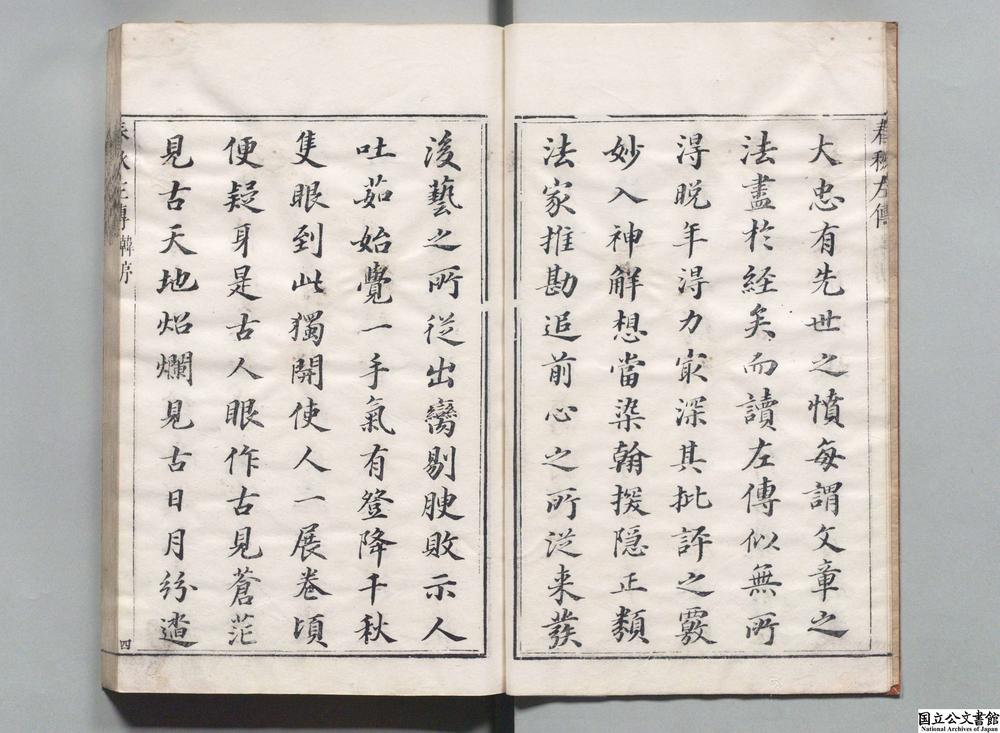 春秋左傳
大忠有先世之憤每謂文章之
法盡扵經矣而讀左傳似無所
淂晚年淂力㝡深其批評之覈
妙入神解想當染翰授隱正類
法家推勘追前心之所從来發
後藝之所從出臠剔腴敗示人
吐茹始覺一手氣有登降千秋
隻眼到此獨開使人一展卷頃
便疑身是古人眼作古見蒼茫
見古天地炤爛見古日月紛遝
春秋左傳韓序
四
国立公文書館
National Archives of Japan